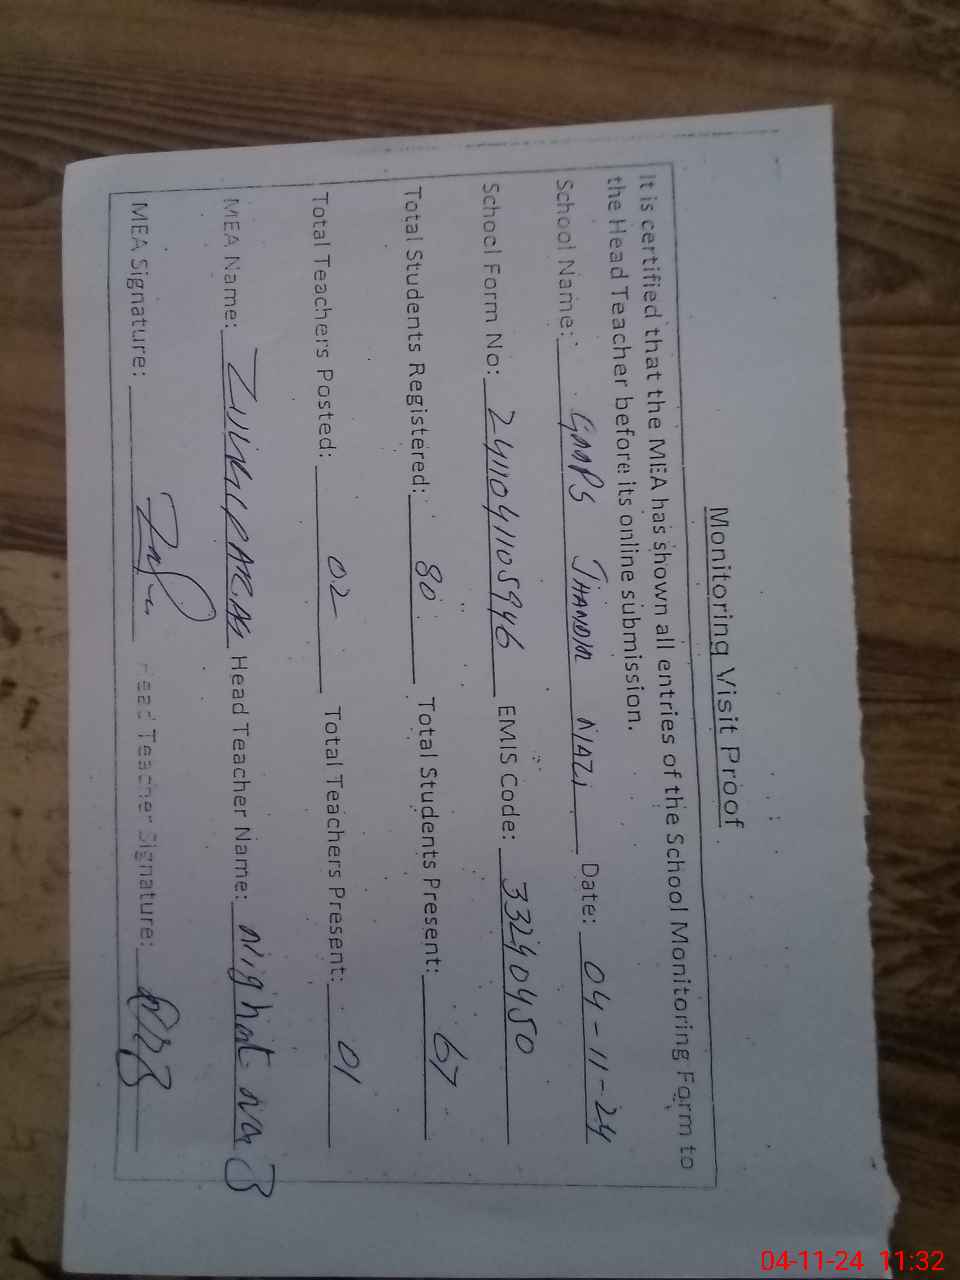 Monitoring Visit Proof
It is certified that the MEA has shown all entries of the School Monitoring Form to
the Head Teacher before its online submission.
School Name: GMPS JHANDIR NAZI Date: 04-11-24
School Form No: 241104105946 EMIS Code: 33240450
Total Students Registered: 80 Total Students Present: 67
Total Teachers Posted: 02 Total Teachers Present: 01
MEA Name: Head Teacher Name: Nighat
MEA Signature: Head Teacher Signature:
04-11-24 11:32